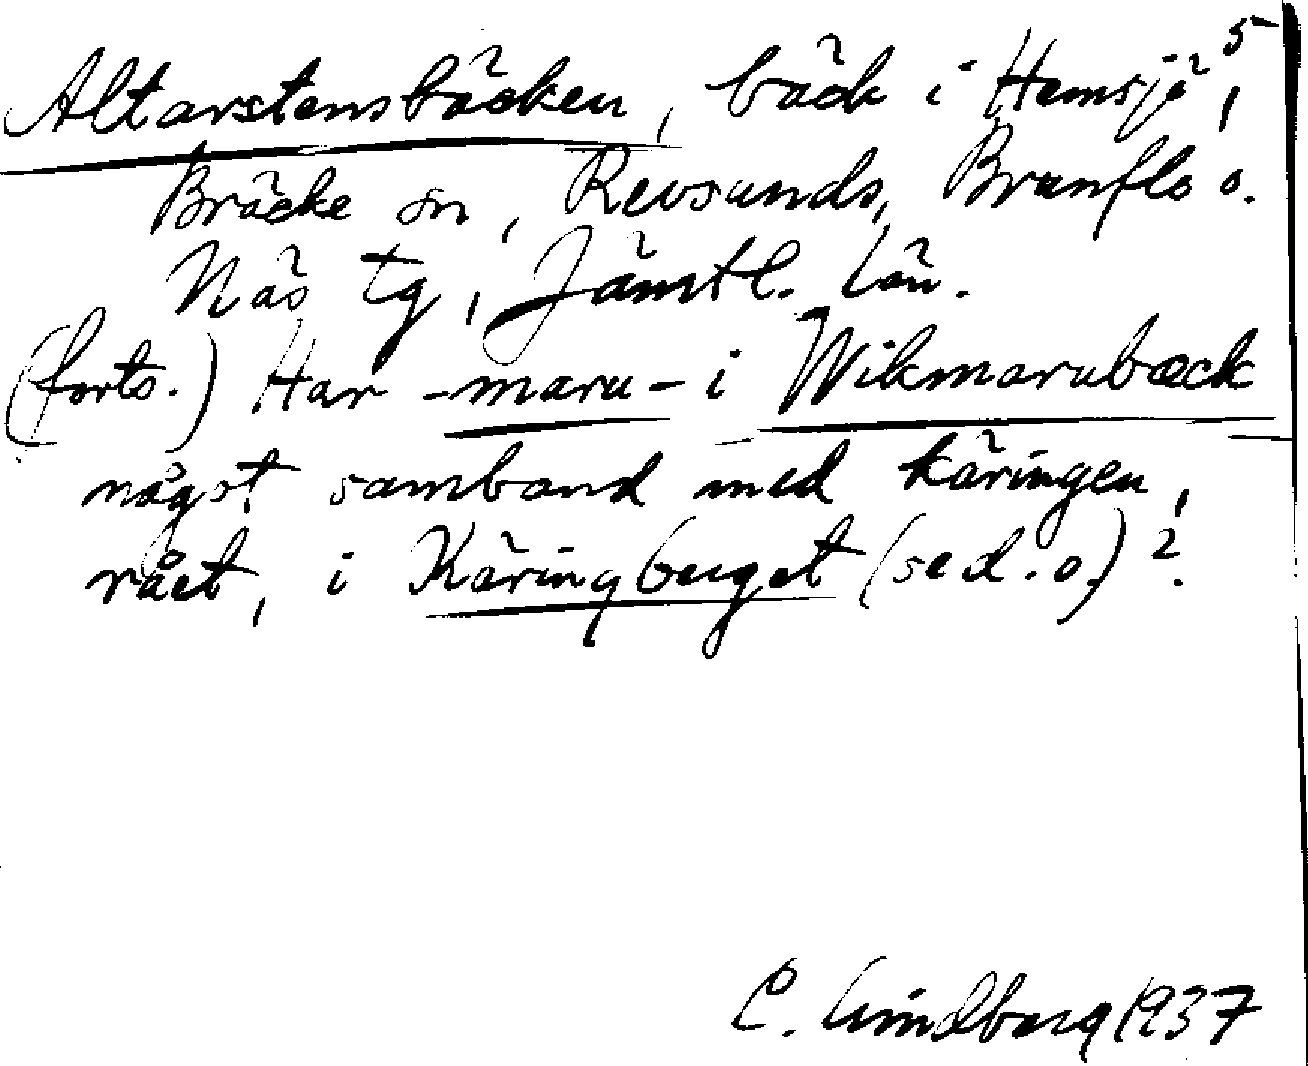 5
Altarstensbäcken, bäck i Hemsjö,
Bräcke sn, Revsunds, Brunflo o.
Näs tg, Jämtl. län.
(forts.) Har -maru- i Wikmarubæck
något samband med käringen,
rået, i Käringberget (se d. o.)?
C. Lindberg 1937